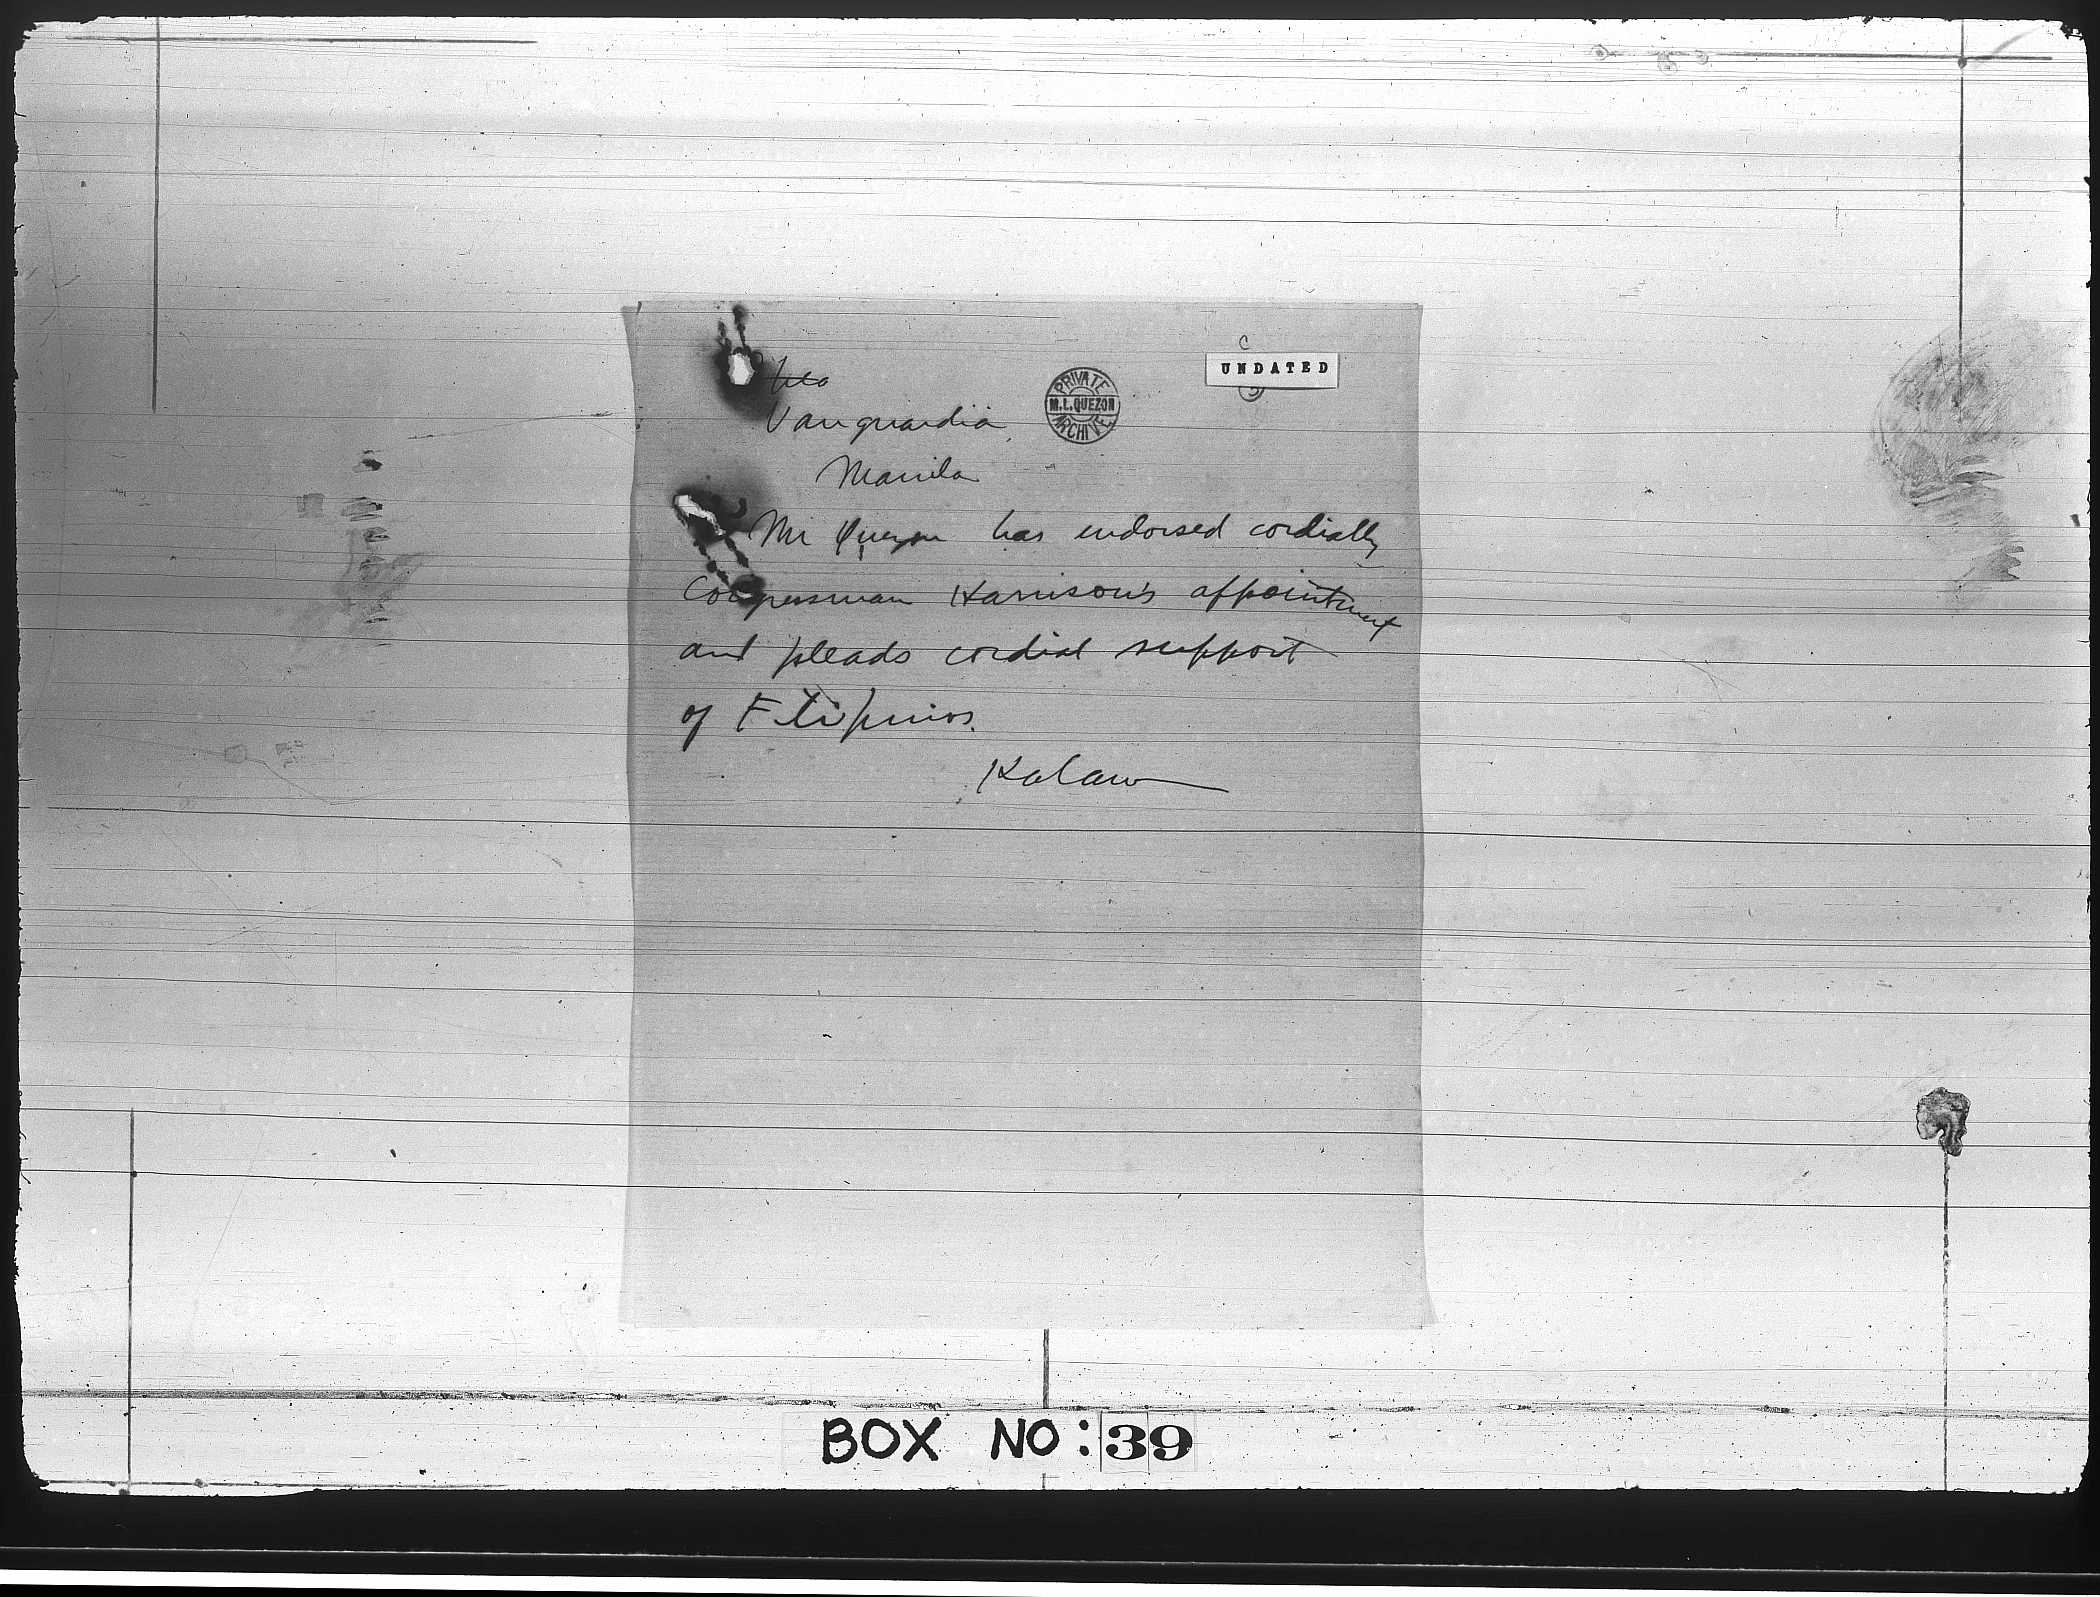 C
UNDATED
PRIVATE
M.L.QUEZON
ARCHIVE
Vanguardia
Manila
Mr Quezon has endorsed cordially
Congressman Harrison's appointment
and pleads cordial support
of Filipinos.
Kalaw
BOX NO: 39